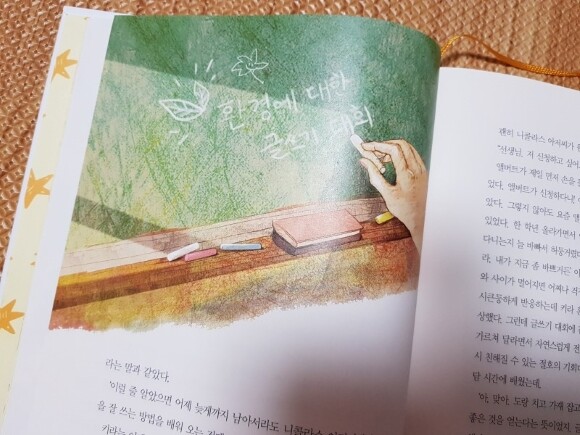 환경에 대한
글쓰기 대회
라는 말과 같았다.
'이럴 줄 알았으면 어제 늦게까지 남아서라도 니콜라스
을 잘 쓰는 방법을 배워 오는 건데
괜히 니콜라스 아저씨가
"선생님, 저 신청하고 싶어
앨버트가 제일 먼저 손을
었다. 앨버트가 신청하다니!
았다. 그렇지 않아도 요즘
있었다. 한 학년 올라가면서
다니는지 늘 바빠서 허둥거렸다
라, 내가 지금 좀 바쁘거든
와 사이가 멀어지면 어쩌나
시큰둥하게 반응하는데 키라
상했다. 그런데 글쓰기 대회에
가르쳐 달라면서 자연스럽게
시 친해질 수 있는 절호의 기회
달 시간에 배웠는데,
'아, 맞아, 도랑 치고 가재 잡고
좋은 것을 얻는다는 뜻이었지.